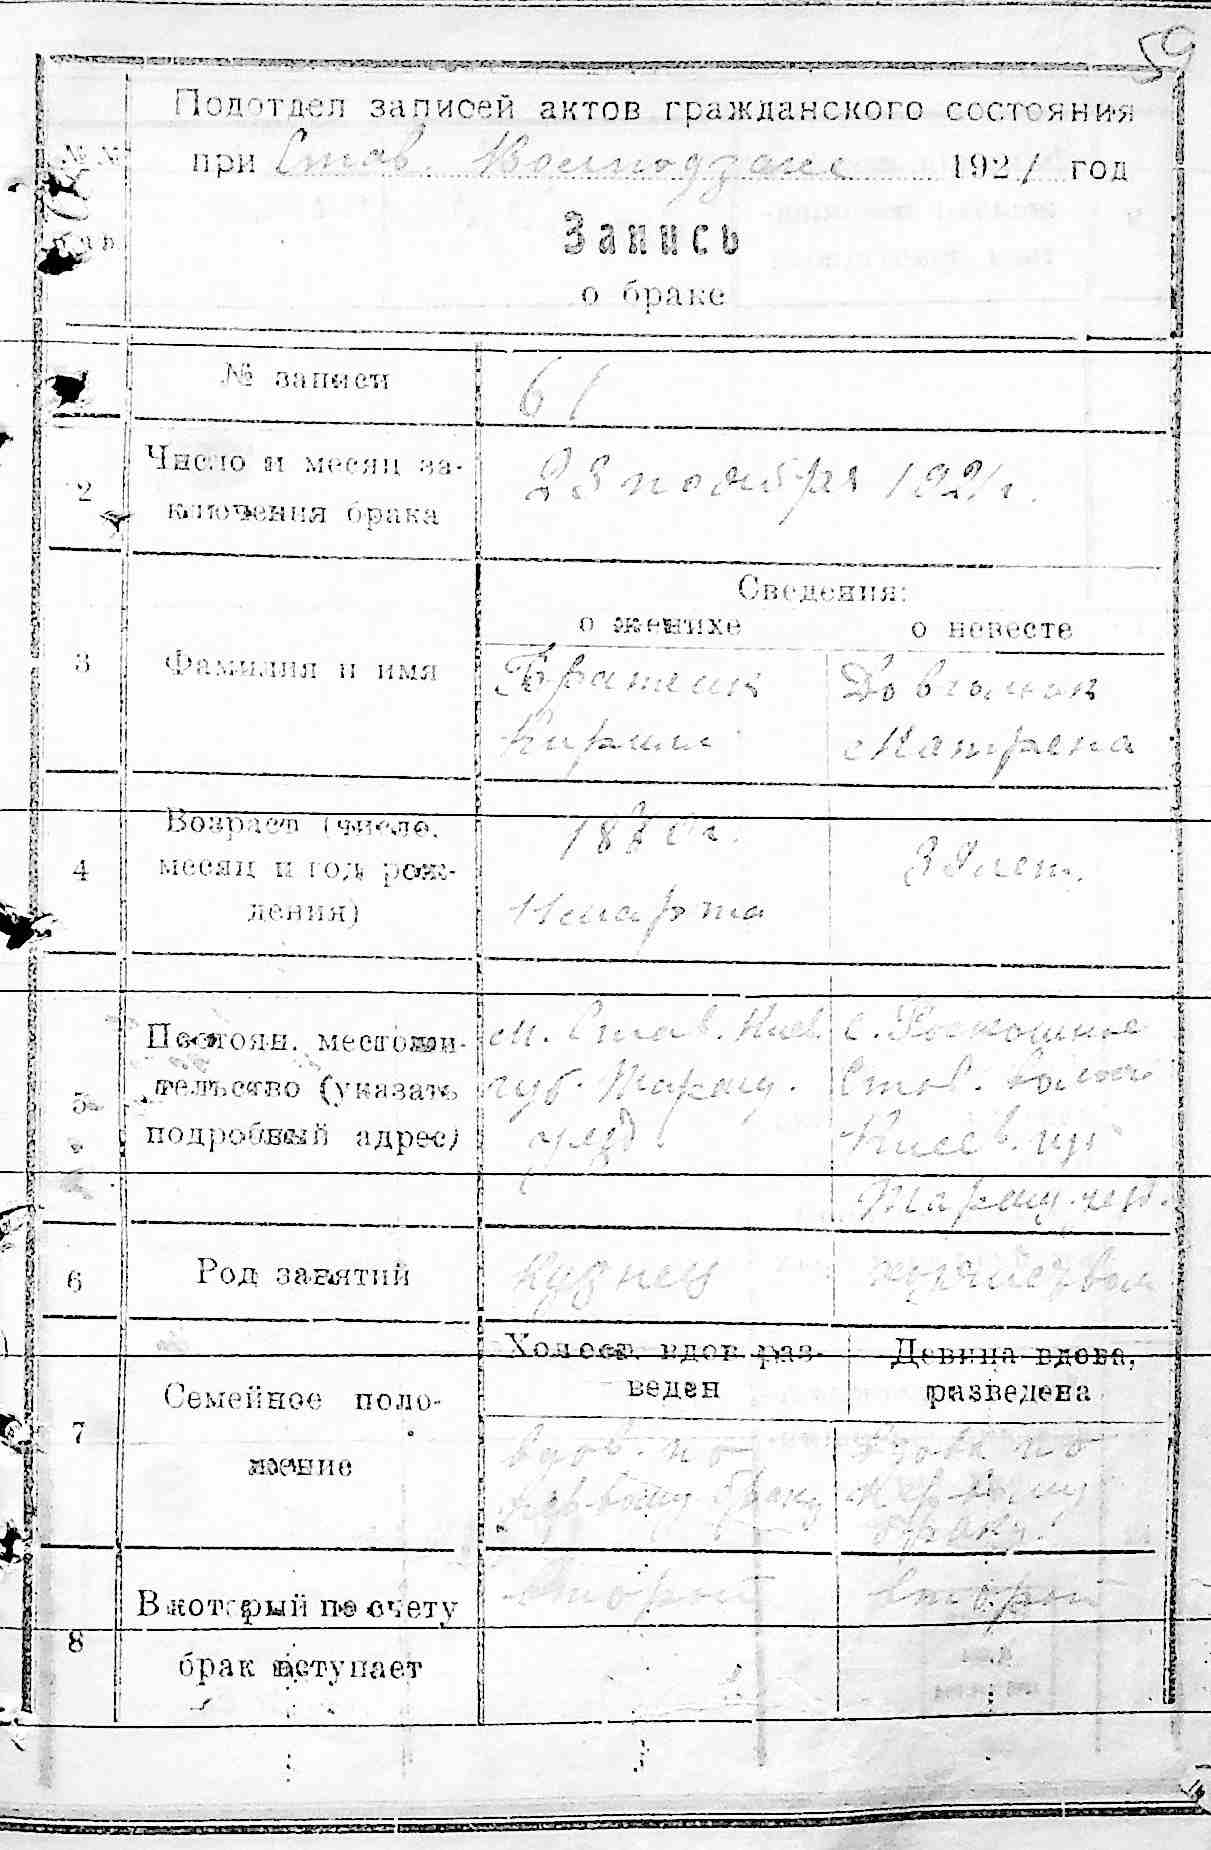 59
Подотдел записей актов гражданского состояния
№ №
при Став. 1921 год
Запись
о браке
№ записи
61
2
Число и месяц за-
ключения брака
23 ноября 1921 г.
Сведения:
о женихе
о невесте
3
Фамилия и имя
Братеик
Кирилл
Матрена
4
Возраст (число,
месяц и год рож-
дения)
г.
марта
лет.
5
Постоян. местожи-
тельство (указать
подробный адрес)
м. Став. Киев.
губ. Таращ.
уезд
с.
Став. волос
Киев. губ
Таращ. уез.
6
Род занятий
кузнец
7
Семейное поло-
жение
Холост. вдов раз-
веден
Девица вдова,
разведена
вдов. по
первому браку
вдова по
первому
браку.
8
В который по счету
брак вступает
Второй
второй